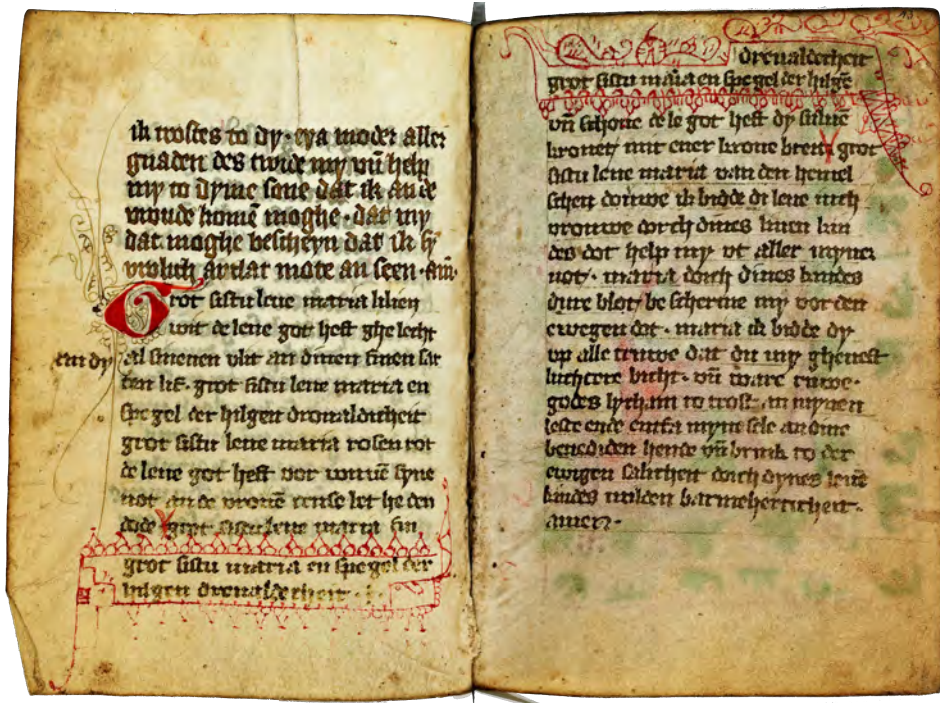 ik trostes to dy · eya moder aller
gnaden des twide my vn̄ help
my to dyme sone dat ik an de
vroude komē moghe · dat my
dat moghe bescheyn dat ik sy
vrolich
Grot sistu leue maria lilien
wit de leue got heft ghe lecht
an dy
al sinenen vlit an dinen finen sar
ten lif · grot sistu leue maria en
spegel der hilgen dreualdicheit
grot sistu leue maria rosen rot
de leue got heft vor wunē syne
not an de vrouē
dode grot sistu leue maria
grot sistu maria en spegel der
hilgen dreualdicheit ·
dreualdicheit
grot sistu maria en spegel der hilgē
vn̄ schone de le got heft dy sulue
kronet mit ener krone breit grot
sistu leue maria van den hemel
schen douwe ik bidde di leue iuch
vrouwe dorch dines leuen kin
des dot help my vt aller myner
not · maria dorch dines kindes
dure blot be scherme my vor den
ewegen dot · maria ik bidde dy
vp alle truwe dat du my gheuest
luchtere bicht · vn̄ ware ruwe ·
godes lycham to trost an mynen
leste ende enfa myne sele an dine
benediden hende vn̄ brink to der
ewigen salicheit dorch dynes leuē
kindes milden barmeherticheit ·
amen ·